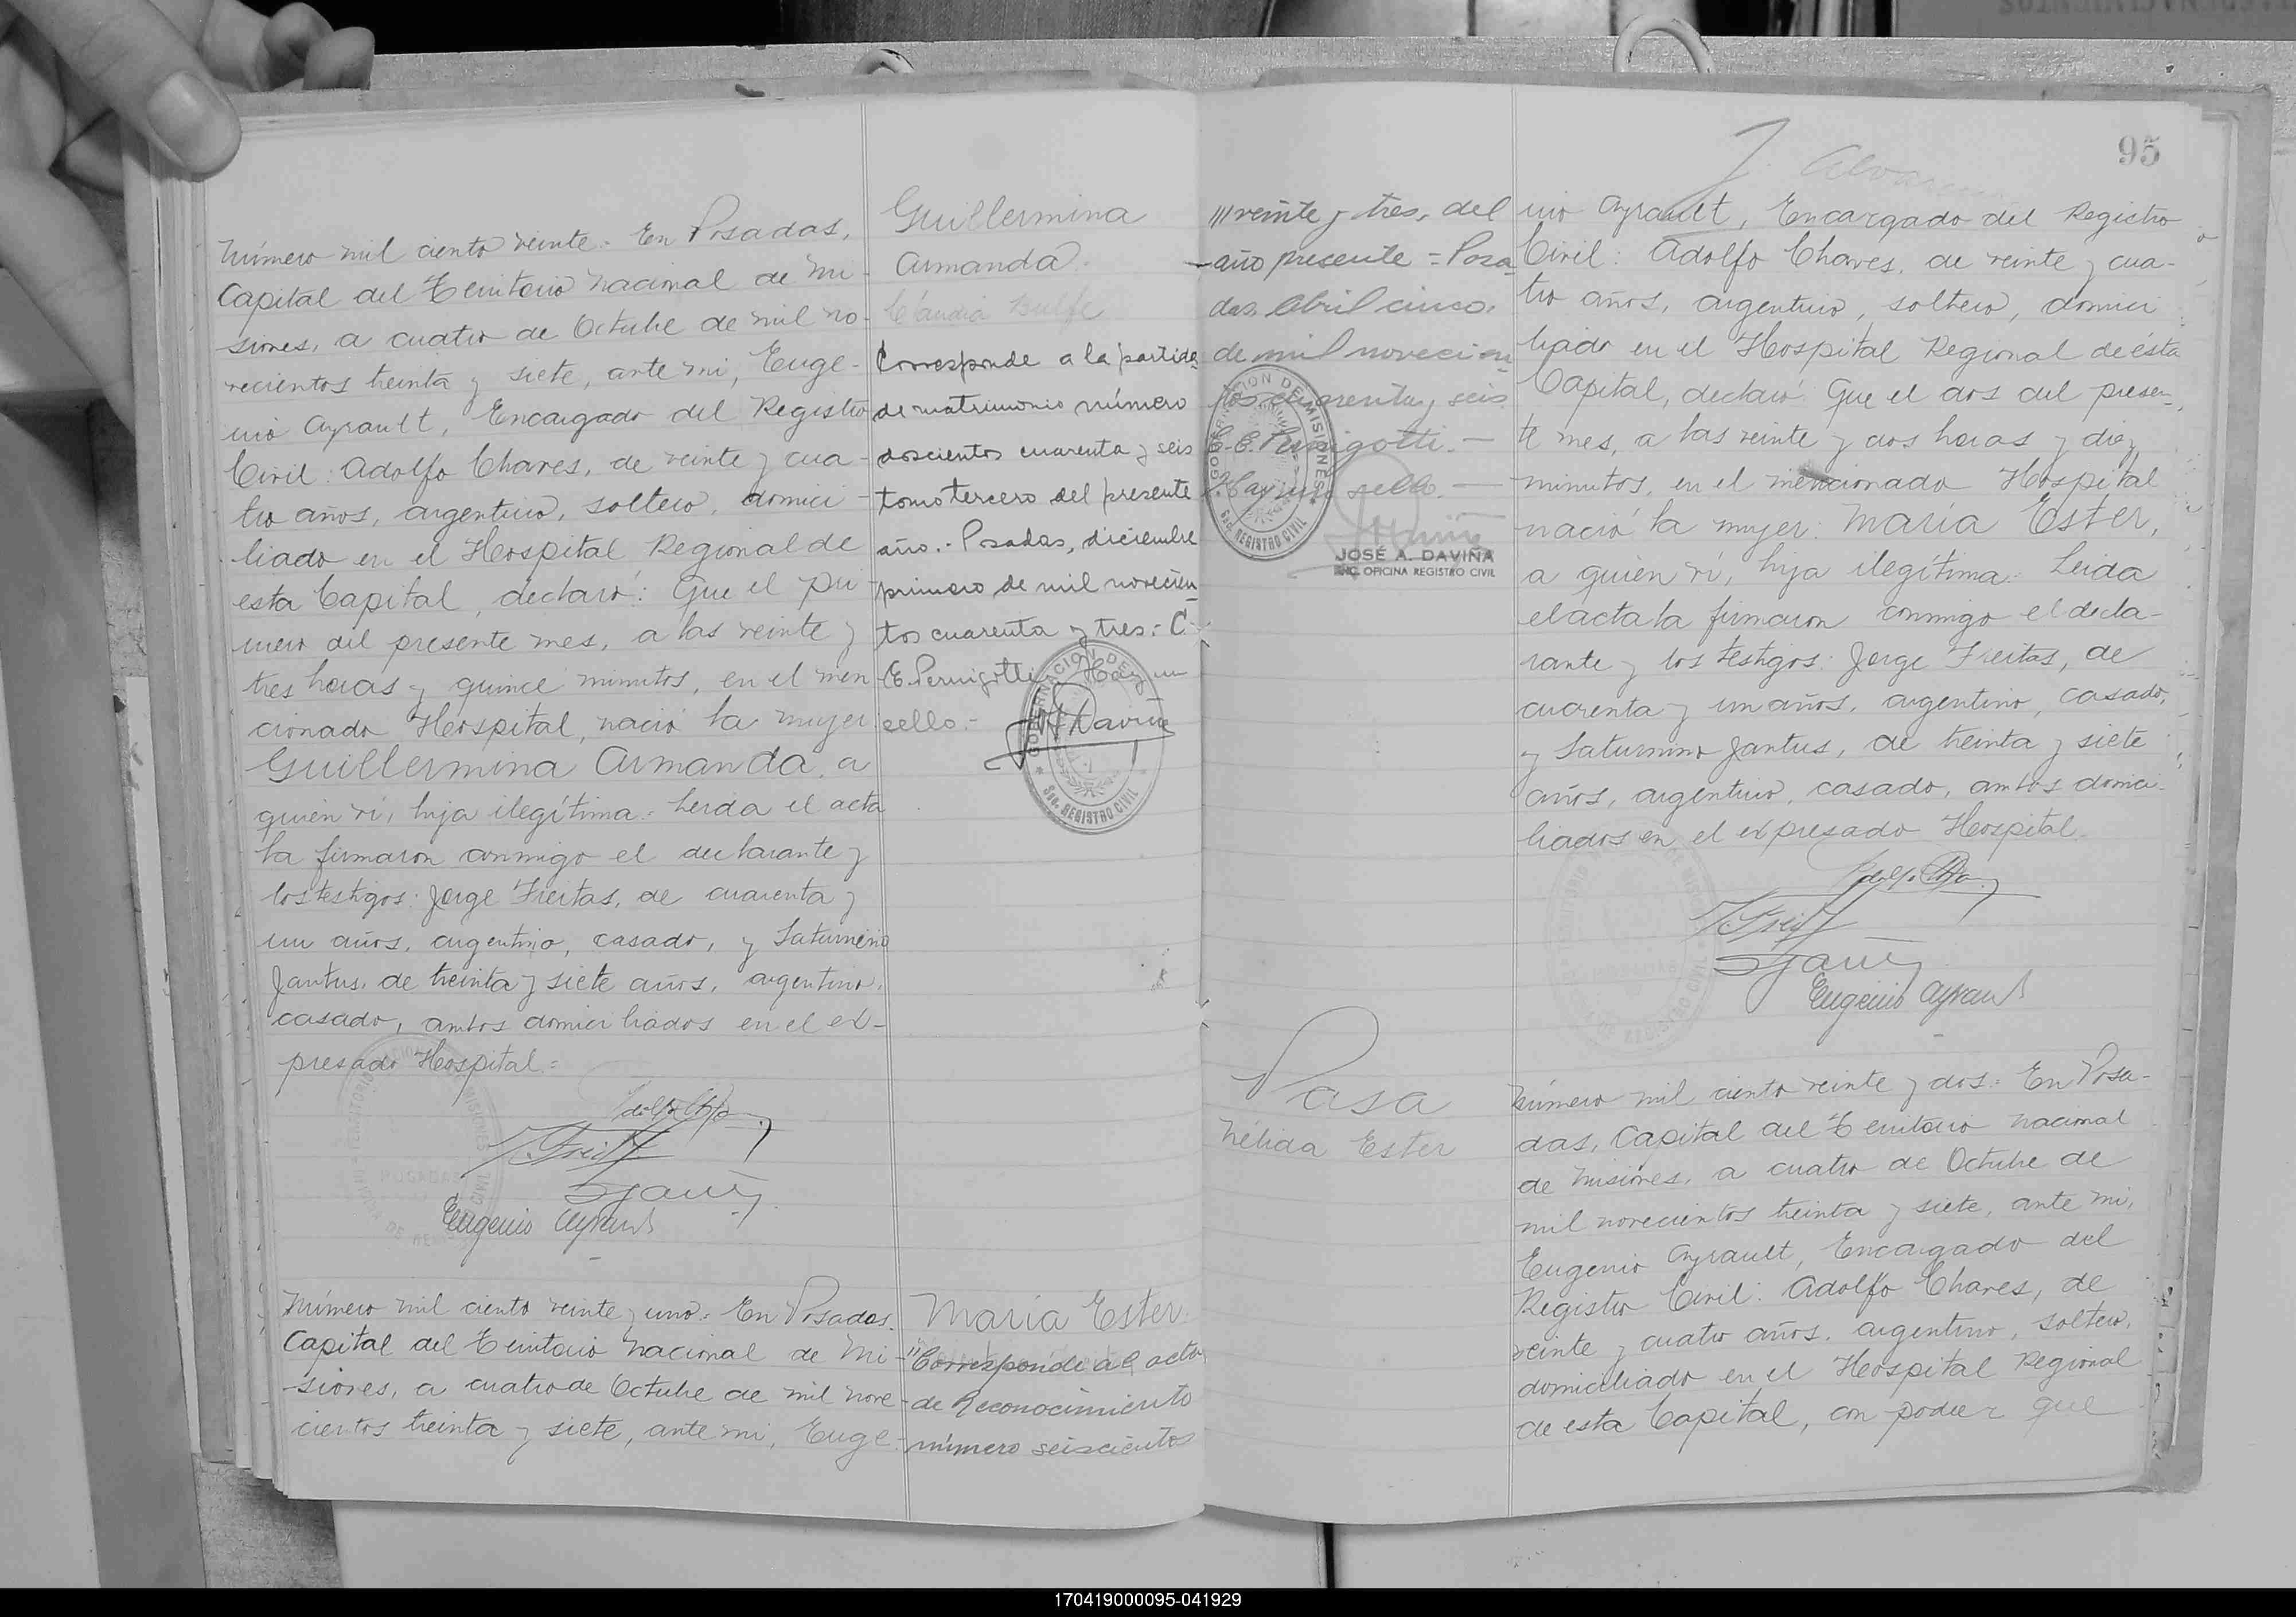 Número mil ciento veinte.- En Posadas,
Capital del Territorio Nacional de Mi-
siones, a cuatro de Octubre de mil no-
vecientos treinta y siete, ante mi, Euge-
nio Ayrault, Encargado del Registro
Civil: Adolfo Chaves, de veinte y cua-
tro años, argentino, soltero, domici-
liado en el Hospital Regional de
esta Capital, declaró: Que el pri-
mero del presente mes, a las veinte y
tres horas y quince minutos, en el men-
cionado Hospital, nació la mujer
Guillermina Armanda, a
quien ví, hija ilegítima.- Leída el acta
la firmaron conmigo el declarante y
los testigos: Jorge Freitas, de cuarenta y
un años, argentino, casado, y Saturnino
Jantus, de treinta y siete años, argentino,
casado, ambos domiciliados en el ex-
presado Hospital.=
Eugenio Ayrault
Número mil ciento veinte y uno.- En Posadas,
Capital del Territorio Nacional de Mi-
siones, a cuatro de Octubre de mil nove-
cientos treinta y siete, ante mi, Euge-
Guillermina
Armanda.
Corresponde a la partida
de matrimonio número
doscientos cuarenta y seis
tomo tercero del presente
año.- Posadas, diciembre
primero de mil novecien-
tos cuarenta y tres.- C.
E. Pernigotti. Hay un
sello.-
GOBERNACION DE
Sec. REGISTRO CIVIL
María Ester.
"Corresponde al acta
de Reconocimiento
número seiscientos
///veinte y tres, del
año presente = Posa-
das, Abril cinco,
de mil novecien-
tos cuarenta y seis
C. E. Pernigotti.-
Hay un sello.-
GOBERNACION DE MISIONES
Sec. REGISTRO CIVIL
JOSÉ A. DAVIÑA
ENC. OFICINA REGISTRO CIVIL
Pasa
Nélida Ester
95
nio Ayrault, Encargado del Registro
Civil: Adolfo Chaves, de veinte y cua-
tro años, argentino, soltero, domici
liado en el Hospital Regional de ésta
Capital, declaró: Que el dos del presen-
te mes, a las veinte y dos horas y diez
minutos, en el mencionado Hospital
nació la mujer: María Ester,
a quien ví, hija ilegítima.- Leida
el acta la firmaron conmigo el decla-
rante y los testigos: Jorge Freitas, de
cuarenta y un años, argentino, casado,
y Saturnino Jantus, de treinta y siete
años, argentino, casado, ambos domici-
liados en el expresado Hospital.
Eugenio Ayrault
Número mil ciento veinte y dos.- En Posa-
das, Capital del Territorio Nacional
de Misiones, a cuatro de Octubre de
mil novecientos treinta y siete, ante mi,
Eugenio Ayrault, Encargado del
Registro Civil: Adolfo Chaves, de
veinte y cuatro años, argentino, soltero,
domiciliado en el Hospital Regional
de esta Capital, con poder que
170419000095-041929